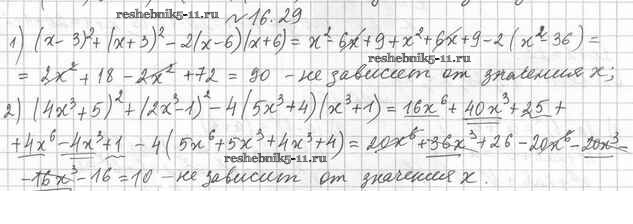 www.reshebnik5-11.ru
№16.29
1) (x-3)²+(x+3)²-2(x-6)(x+6) = x²-6x+9+x²+6x+9-2(x²-36) =
= 2x²+18-2x²+72 = 90 - не зависит от значения x;
2) (4x³+5)²+(2x³-1)²-4(5x³+4)(x³+1) = 16x⁶+40x³+25+
+4x⁶-4x³+1-4(5x⁶+5x³+4x³+4) = 20x⁶+36x³+26-20x⁶-20x³-
reshebnik5-11.ru
-16x³-16=10 - не зависит от значения x.
www.reshebnik5-11.ru